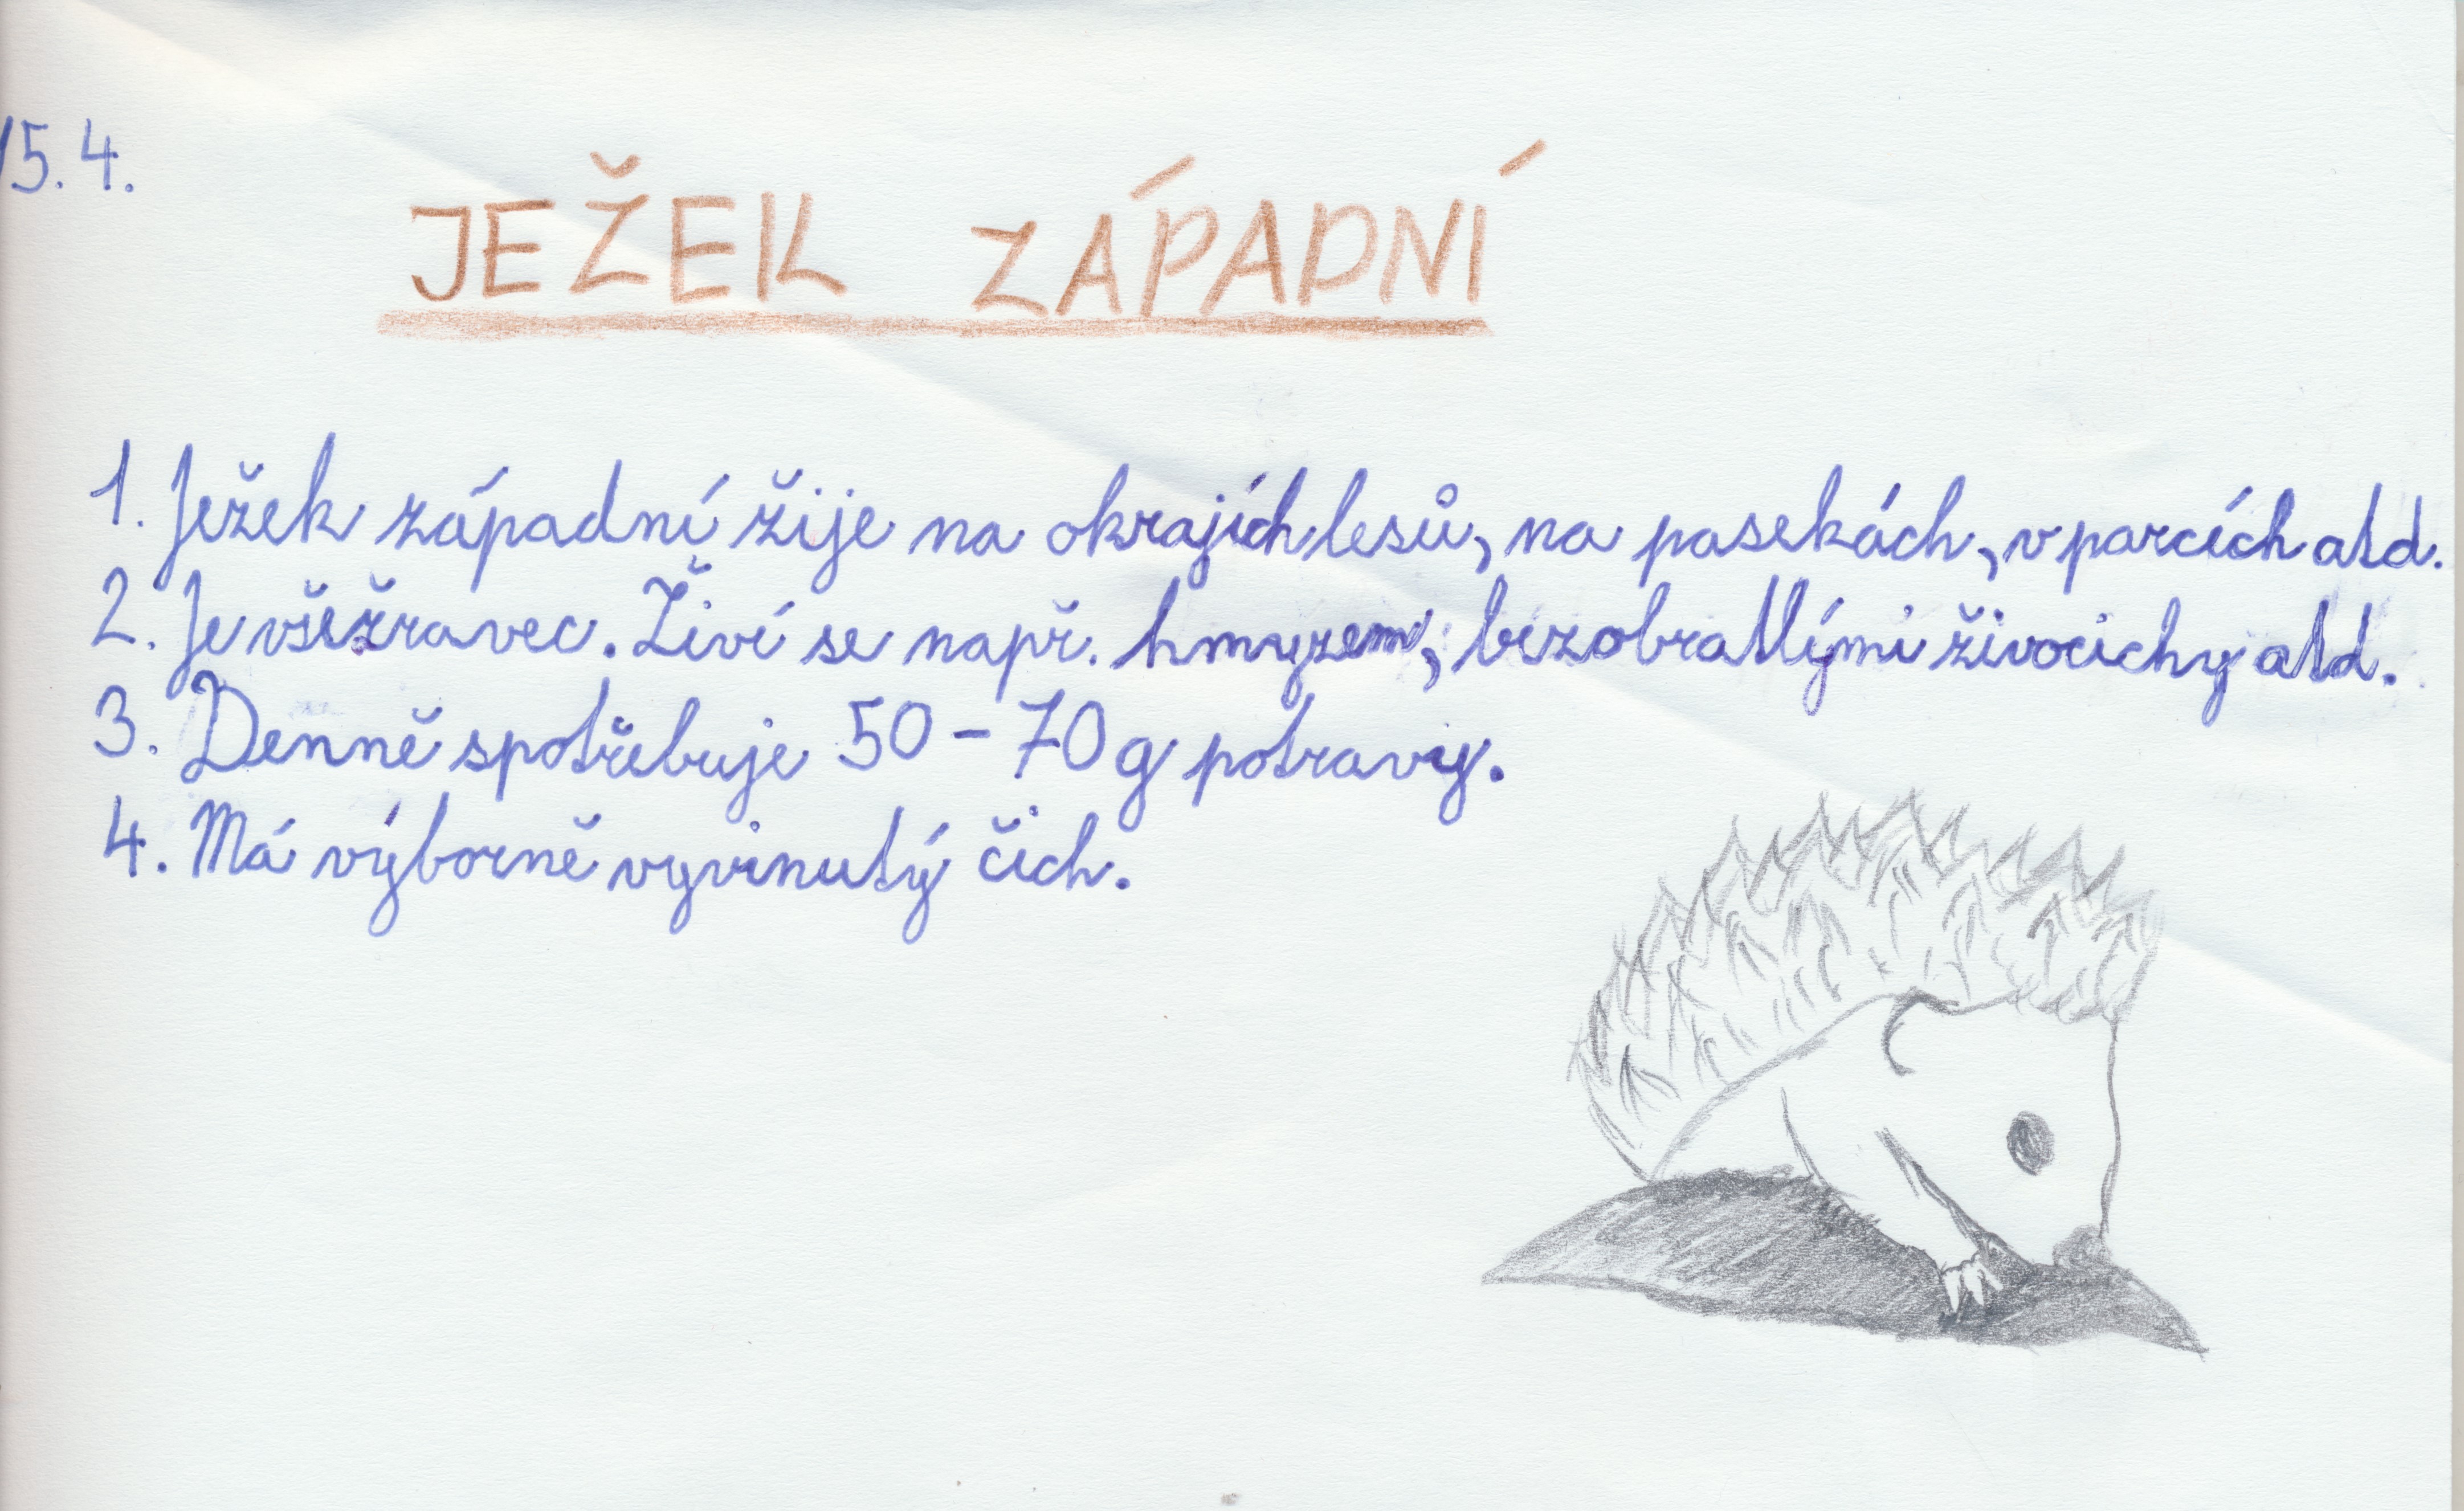 15.4.
JEŽEK ZÁPADNÍ
1. Ježek západní žije na okrajích lesů, na pasekách, v parcích atd.
2. Je všežravec. Živí se např. hmyzem, bezobratlými živocichy atd.
3. Denně spotřebuje 50 - 70 g potravy.
4. Má výborně vyvinutý čich.